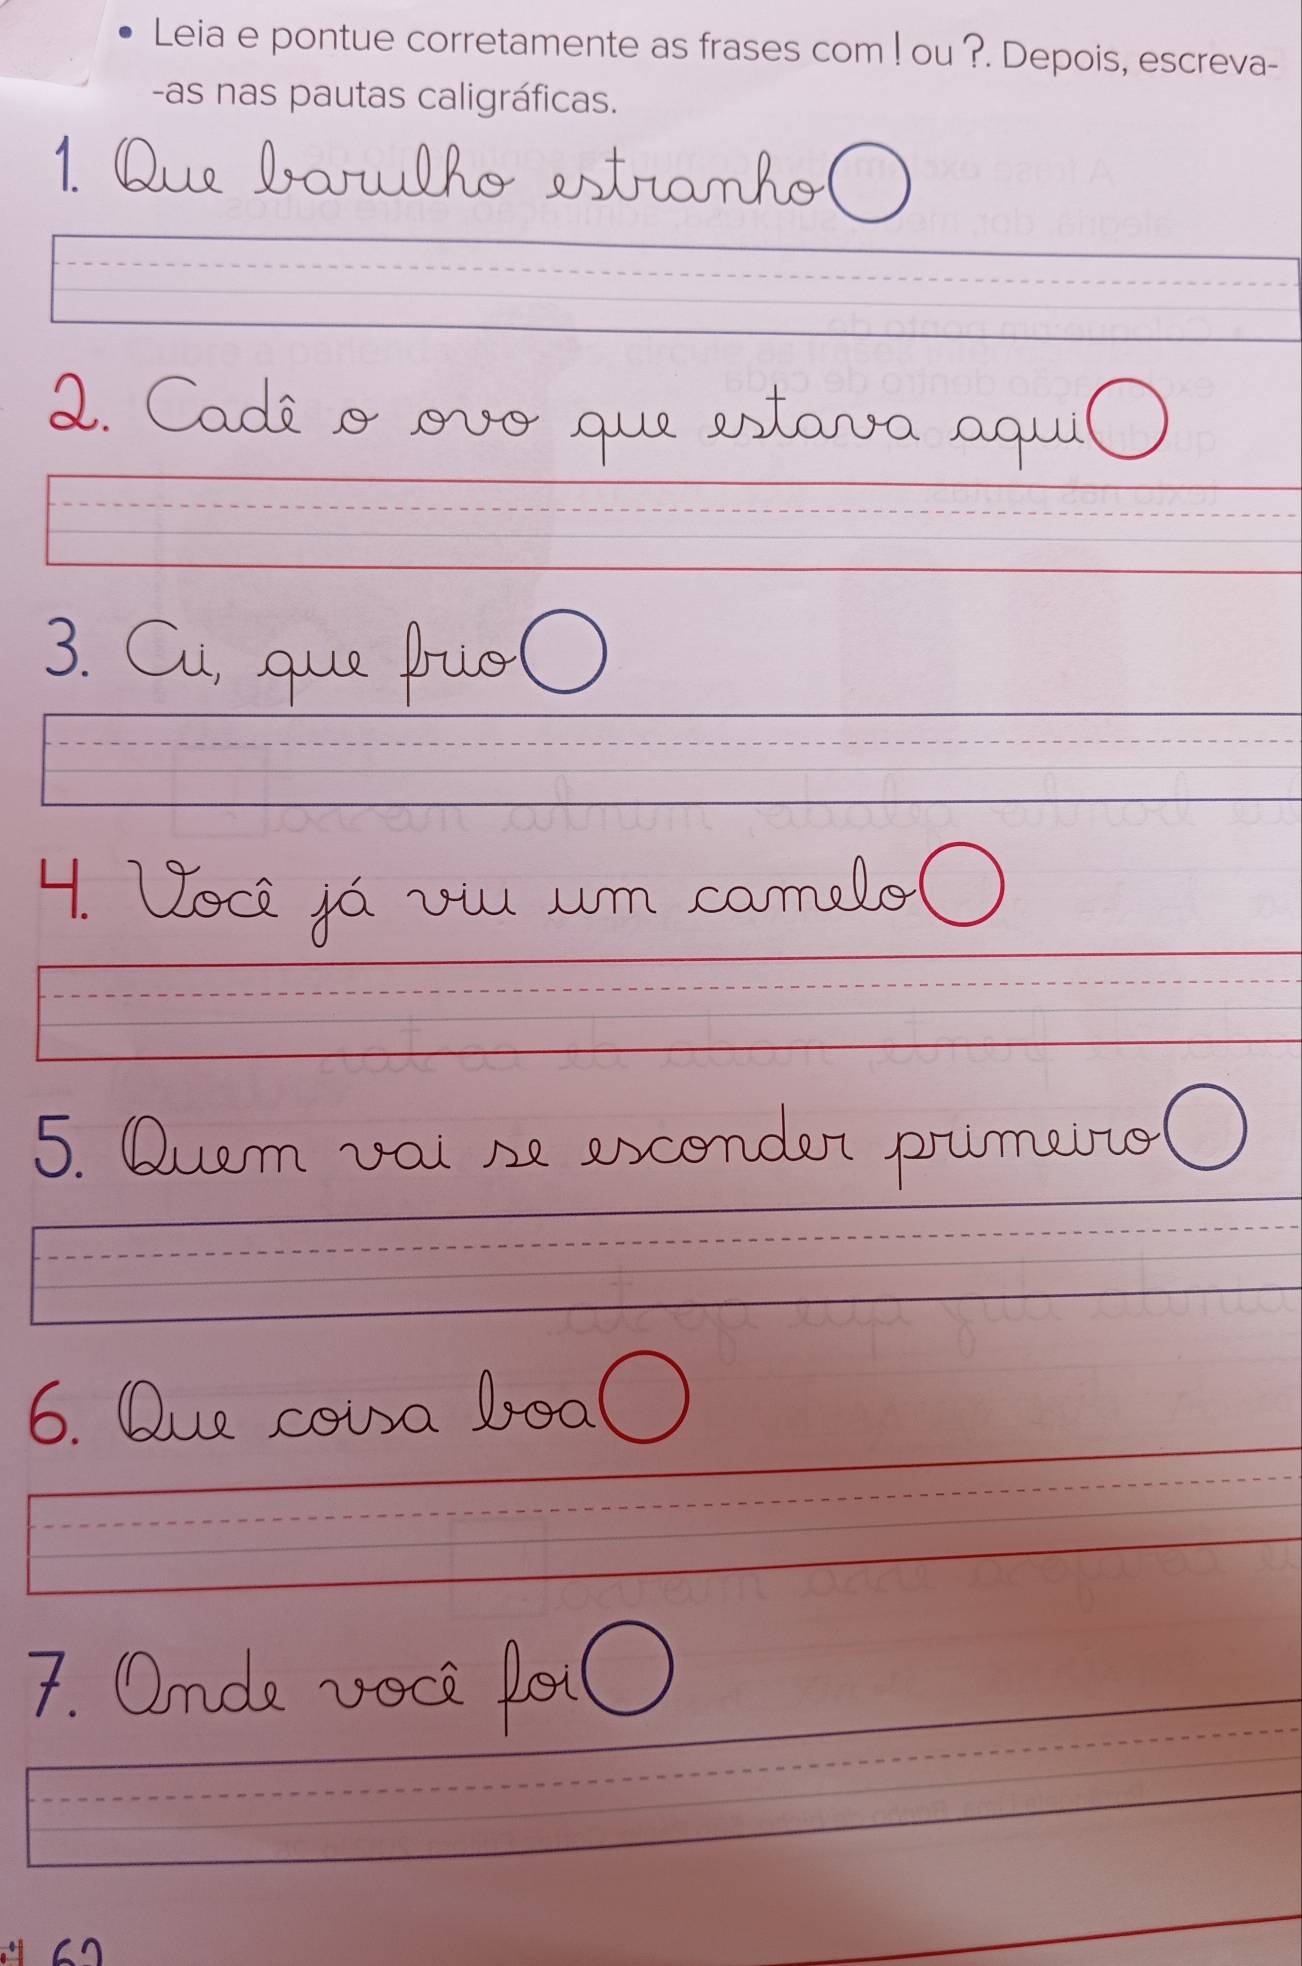 • Leia e pontue corretamente as frases com ! ou ?. Depois, escreva-
-as nas pautas caligráficas.
1. Que barulho estranho
2. Cadê o ovo que estava aqui
3. Ai, que frio
4. Você já viu um camelo
5. Quem vai se esconder primeiro
6. Que coisa boa
7. Onde você foi